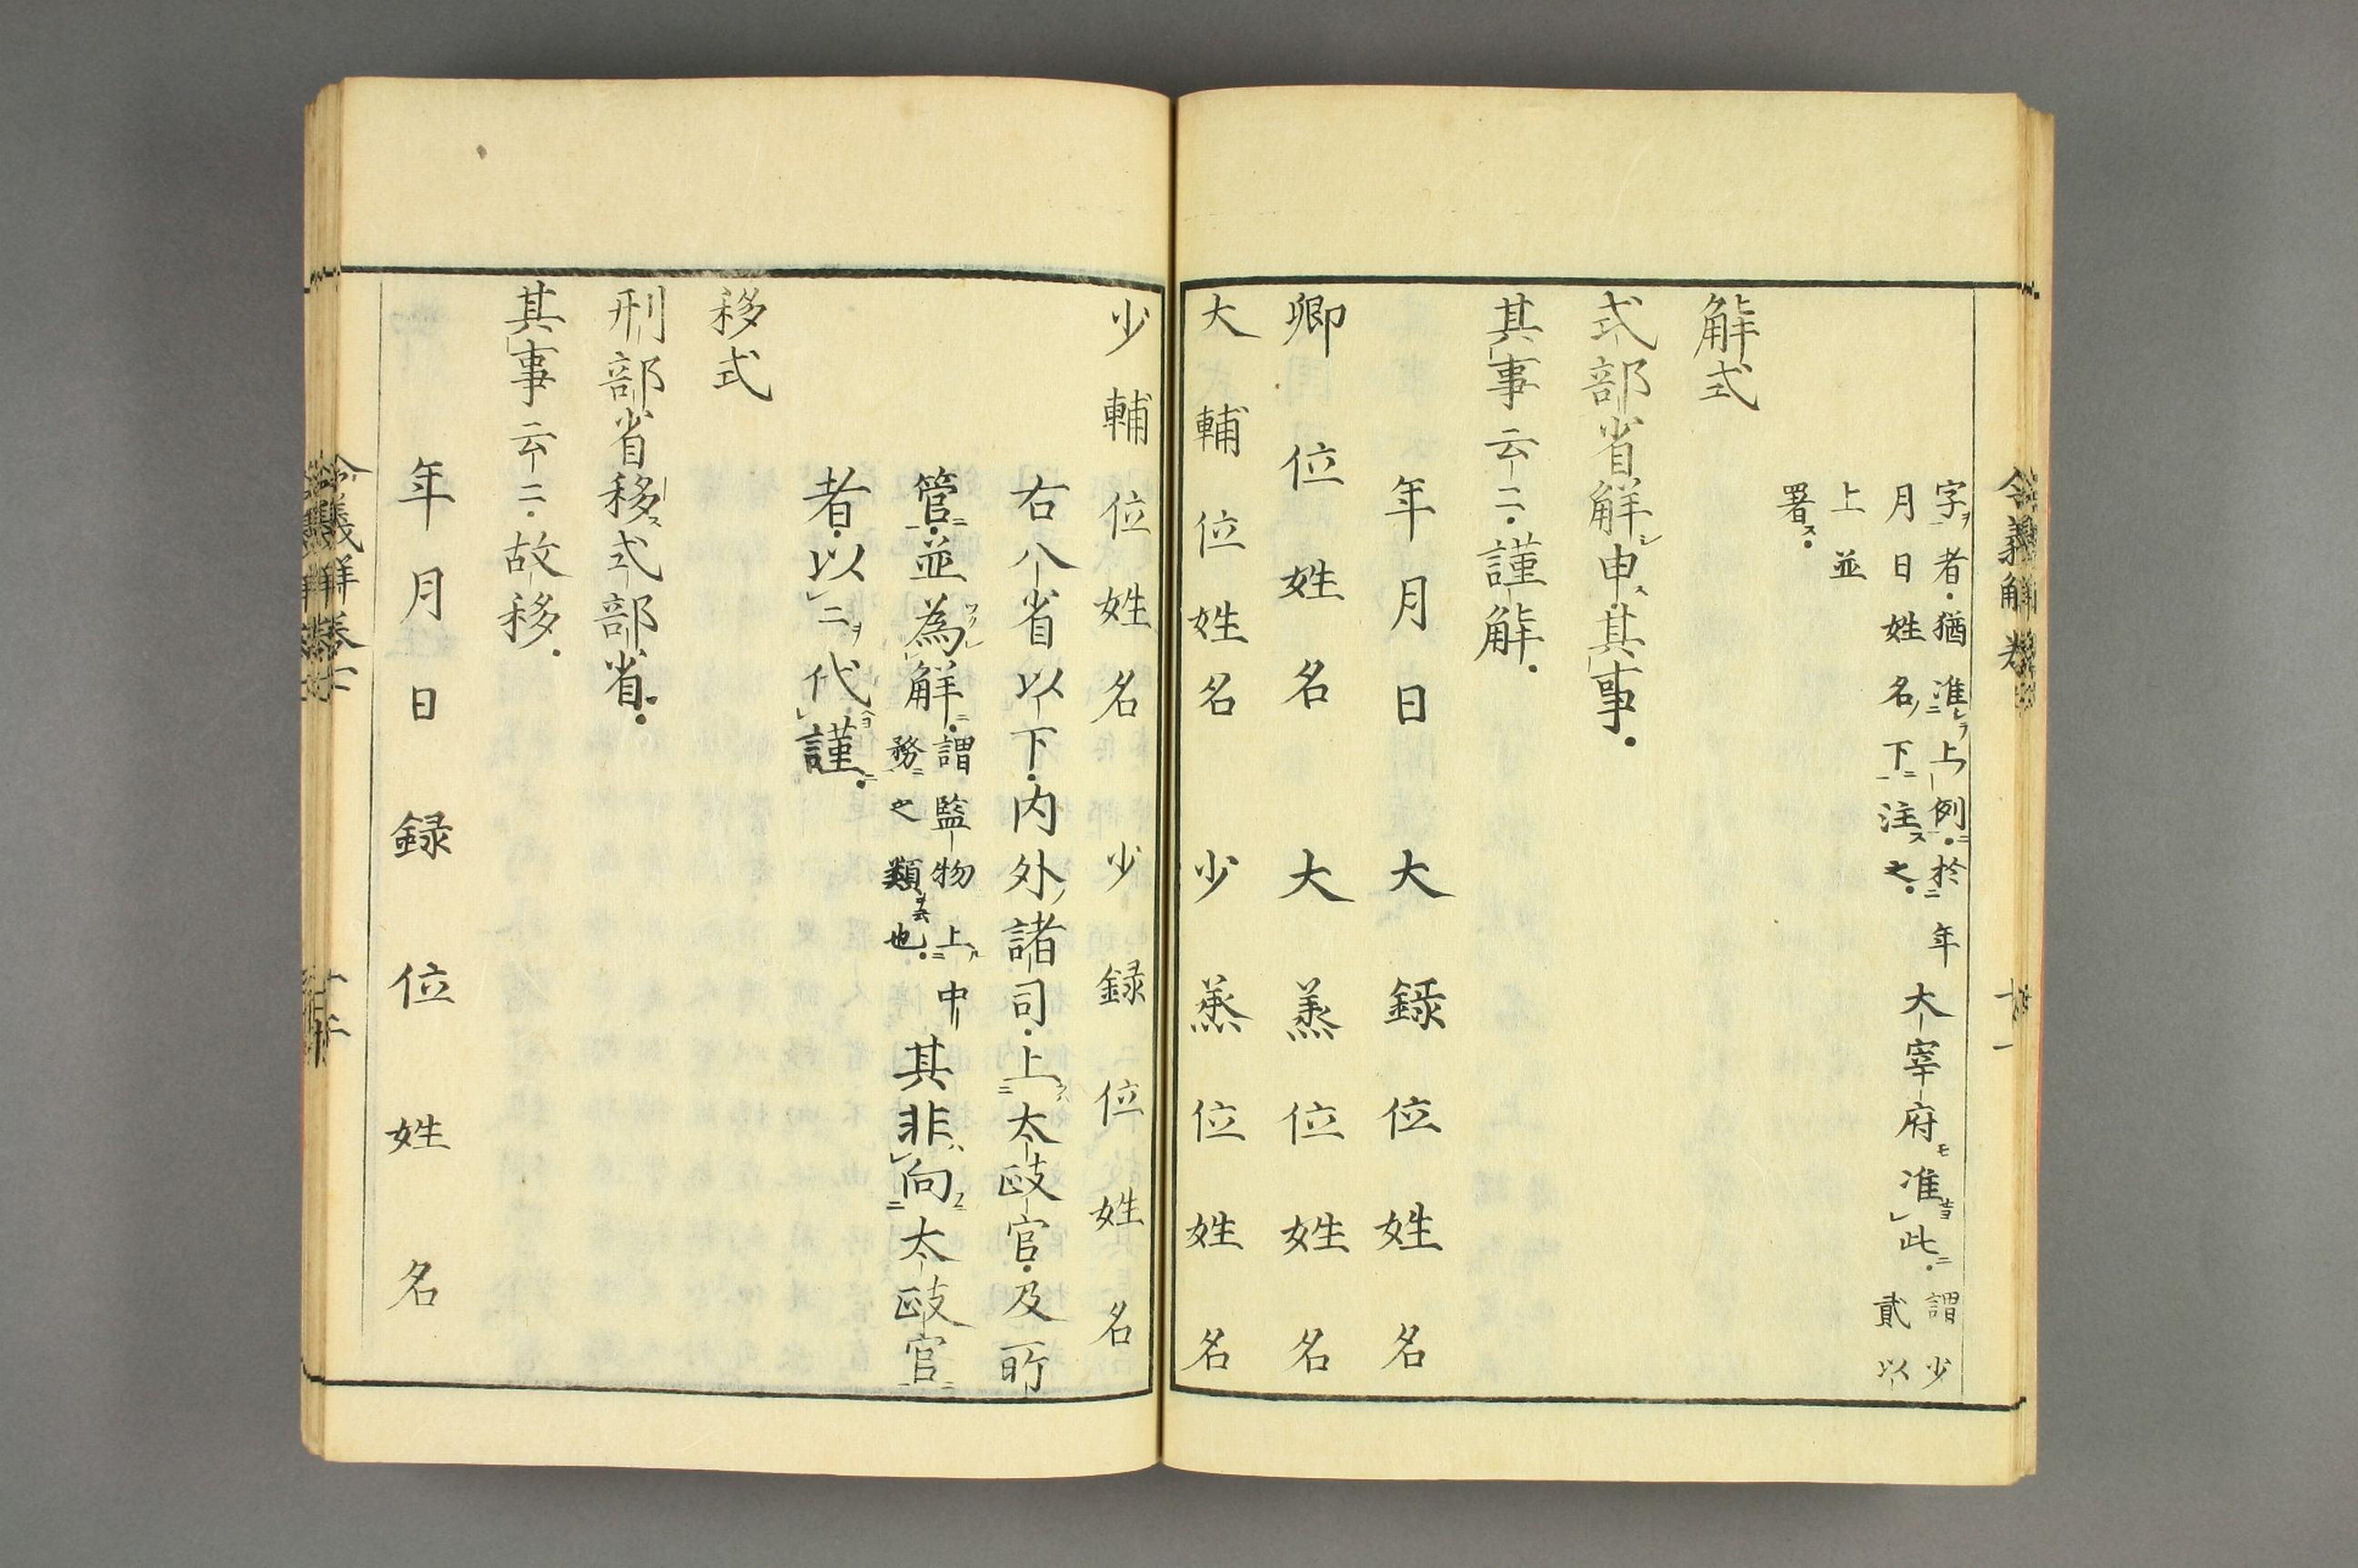 字者猶准上例於年
月日姓名下注之
大宰府准此
謂少
貳以
上並
署
解式
式部省解申其事
其事云二謹解
年月日　大録位姓名
卿位姓名　大蒸位姓名
大輔位姓名　少蒸位姓名
少輔位姓名　少録位姓名
右八省以下内外諸司上太政官及所
管並為解
謂監物上中
務之類也
其非向太政官
者以二代謹
移式
刑部省移式部省
其事云二故移
年月日　録位姓名
令義解卷